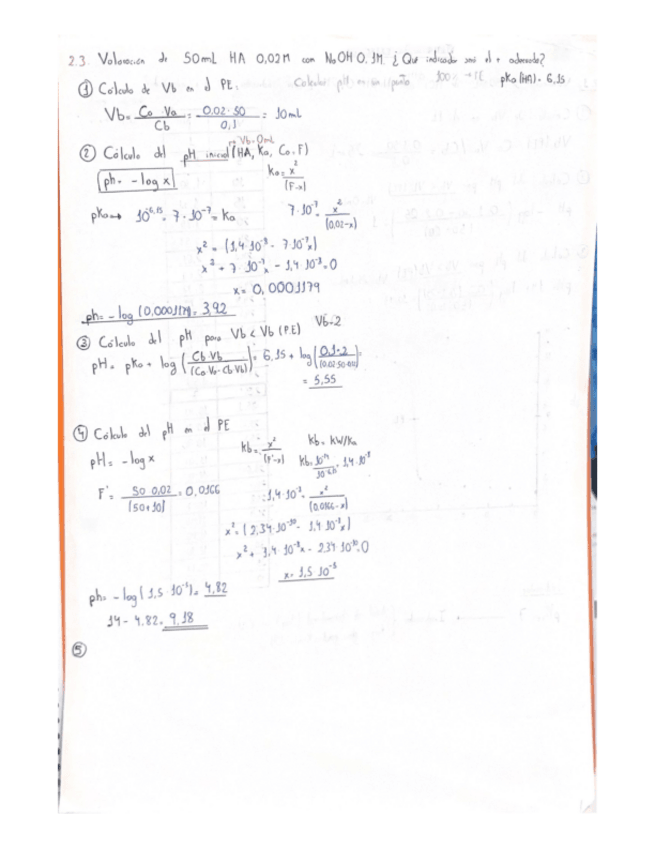 2.3. Valoración de 50mL HA 0,02M con NaOH 0.1M. ¿Qué indicador será el + adecuado?
① Cálculo de Vb en el PE. Calcular pH en un punto 100 → PE pKa (HA) = 6,15
Vb = Ca Va / Cb = 0.02 · 50 / 0,1 = 10mL
→ Vb = 0mL
② Cálculo del pH inicial (HA, Ka, Ca = F)
ph = -log x Ka = x² / (F-x)
pKa → 10^6,15 = 7 · 10⁻⁷ = Ka 7·10⁻⁷ = x² / (0,02-x)
x² = (1,4·10⁻⁸ - 7·10⁻⁷x)
x² + 7·10⁻⁷x - 1,4·10⁻⁸ = 0
x = 0,0001179
ph = -log (0,0001179) = 3,92
③ Cálculo del pH para Vb < Vb (P.E) Vb = 2
pH = pKa + log (Cb·Vb / (Ca·Va - Cb·Vb)) = 6,15 + log (0.1·2 / (0.02·50-0.1·2)) =
= 5,55
④ Cálculo del pH en el PE
pH = -log x Kb = x² / (F'-x) Kb = KW/Ka
Kb = 10⁻¹⁴ / 10^-6,15 = 1,4·10⁻⁸
F' = 50·0,02 / (50+10) = 0,0166 = 1,4·10⁻⁸ = x² / (0,0166-x)
x² = (2,34·10⁻¹⁰ - 1,4·10⁻⁸x)
x² + 1,4·10⁻⁸x - 2,34·10⁻¹⁰ = 0
x = 1,5·10⁻⁵
ph = -log (1,5·10⁻⁵) = 4,82
14 - 4,82 = 9,18
⑤